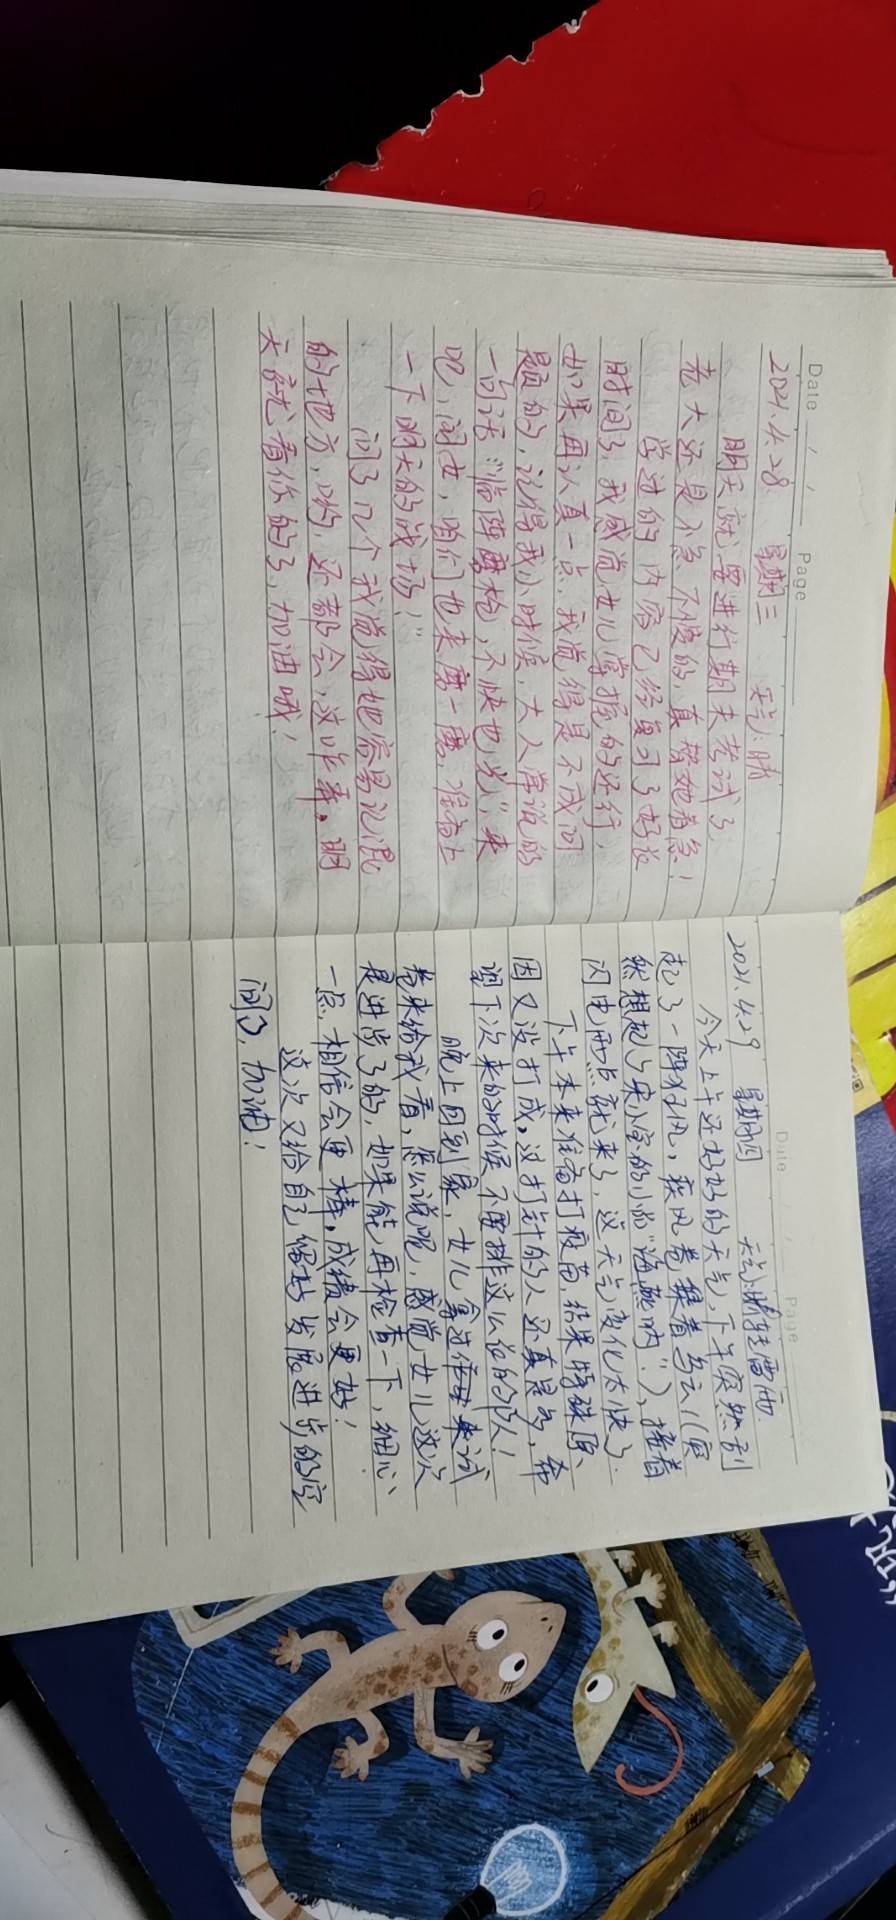 Date / / Page
2021.4.28 星期三 天气:晴
明天就要进行期末考试了,
老大还是不急不慢的,真替她着急!
学过的内容已经复习了好长
时间了,我感觉女儿掌握的还行,
如果再认真一点,我觉得是不成问
题的,记得我小时候,大人常说的
一句话:“临阵磨枪,不快也光”,来
吧,闺女,咱们也来磨一磨,准备上
一下明天的战场!”
问了几个我觉得她容易记混
的地方,哟,还都会,这咋弄。明
天就看你的了,加油哦!
Date / / Page
2021.4.29 星期四 天气:晴转雷雨
今天上午还好好的天气,下午突然刮
起了一阵狂风,疾风卷集着乌云(突
然想起了宋小宝的小品“海燕呐”),接着
闪电雨点就来了,这天气变化太快了.
下午本来准备打疫苗,结果特殊原
因又没打成,过打针的人还真是多,希
望下次来的时候不要排这么长的队!
晚上回到家,女儿拿过作业来试
卷来给我看,怎么说呢,感觉女儿这次
是进步了的,如果能再检查一下,细心
一点,相信会更棒,成绩会更好!
这次又给自己留好发展进步的空
间了,加油!